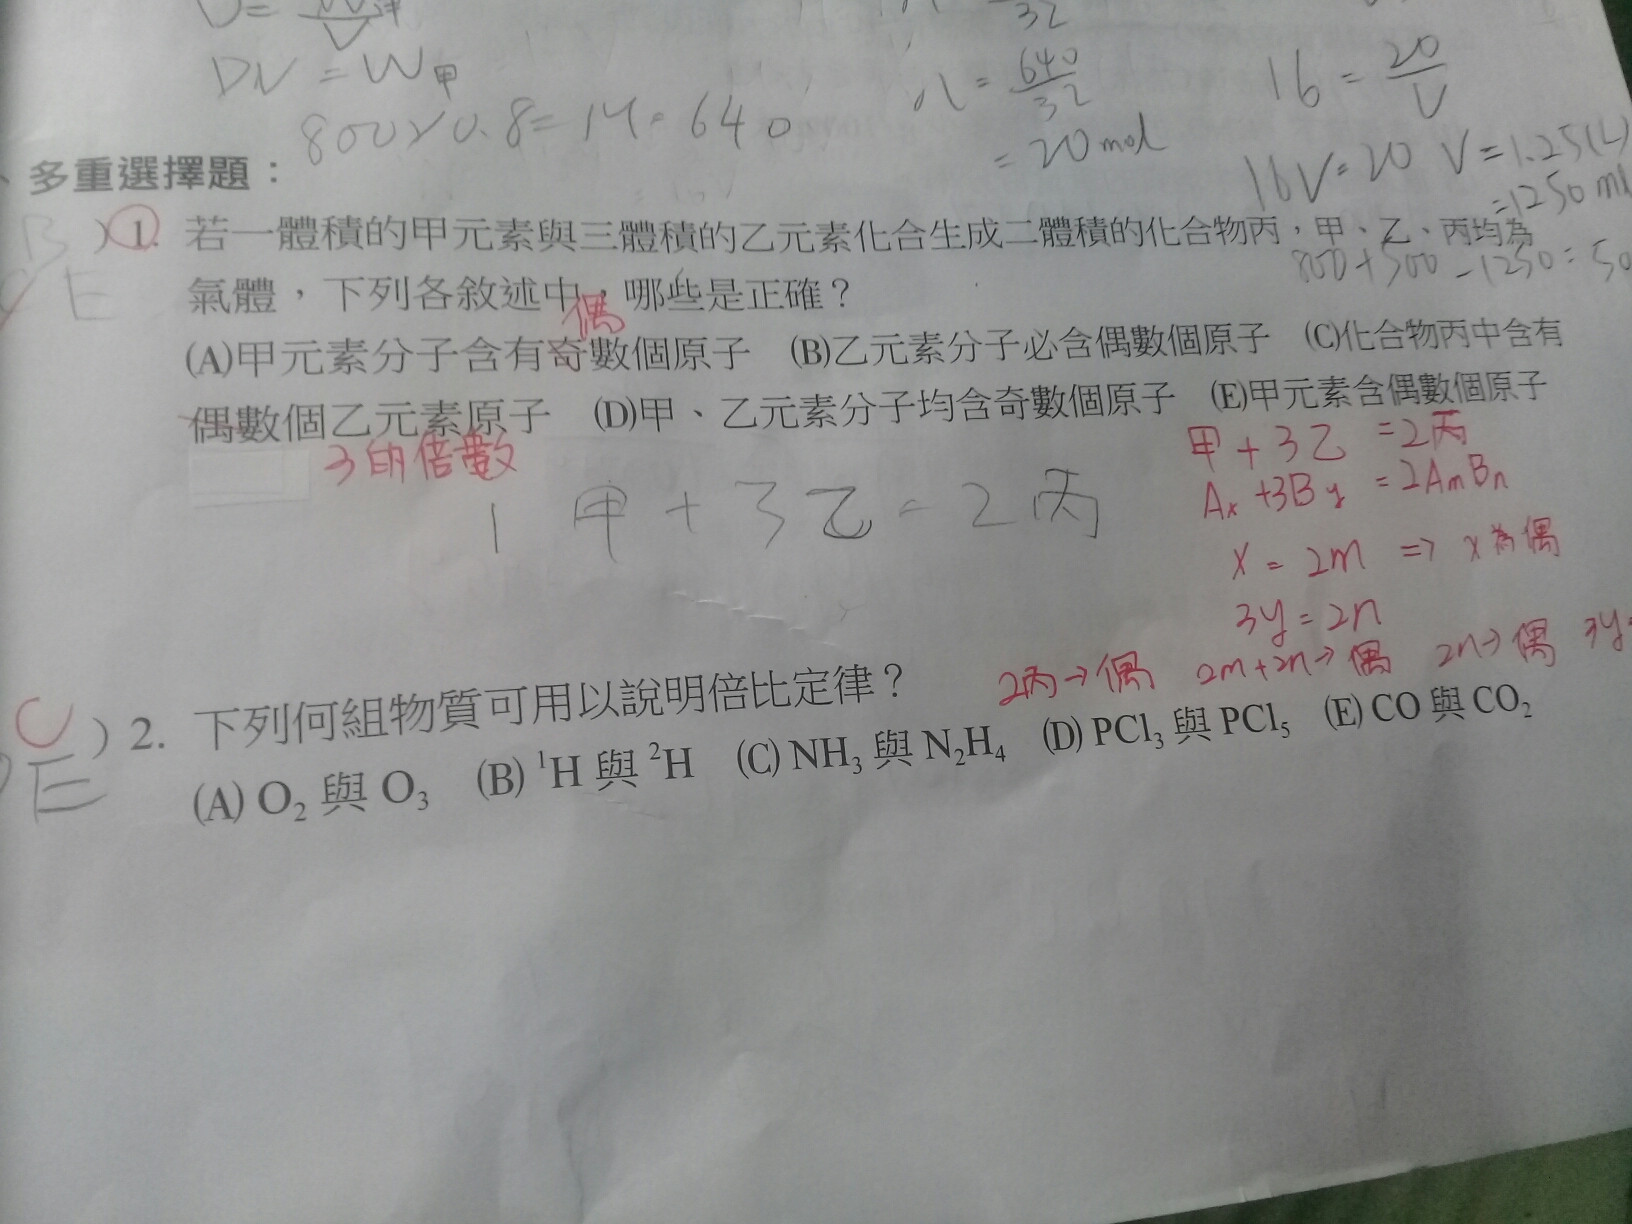 DV = W甲
800×0.8=M=640
32
n = 640/32
= 20 mol
16 = 20/V
16V=20 V=1.25(L)
=1250 ml
800+500-1250=50
多重選擇題：
B E
)1. 若一體積的甲元素與三體積的乙元素化合生成二體積的化合物丙，甲、乙、丙均為
氣體，下列各敘述中，哪些是正確？
偶
(A)甲元素分子含有奇數個原子 (B)乙元素分子必含偶數個原子 (C)化合物丙中含有
偶數個乙元素原子 (D)甲、乙元素分子均含奇數個原子 (E)甲元素含偶數個原子
3的倍數
1 甲+3乙=2丙
甲+3乙=2丙
Ax+3By=2AmBn
x=2m => x為偶
3y=2n
2丙→偶 2m+2n→偶 2n→偶 3y
C
D E
)2. 下列何組物質可用以說明倍比定律？
(A) O₂ 與 O₃ (B) ¹H 與 ²H (C) NH₃ 與 N₂H₄ (D) PCl₃ 與 PCl₅ (E) CO 與 CO₂